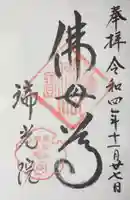 奉拝 令和四年十一月廿七日
佛母尊
諦光院